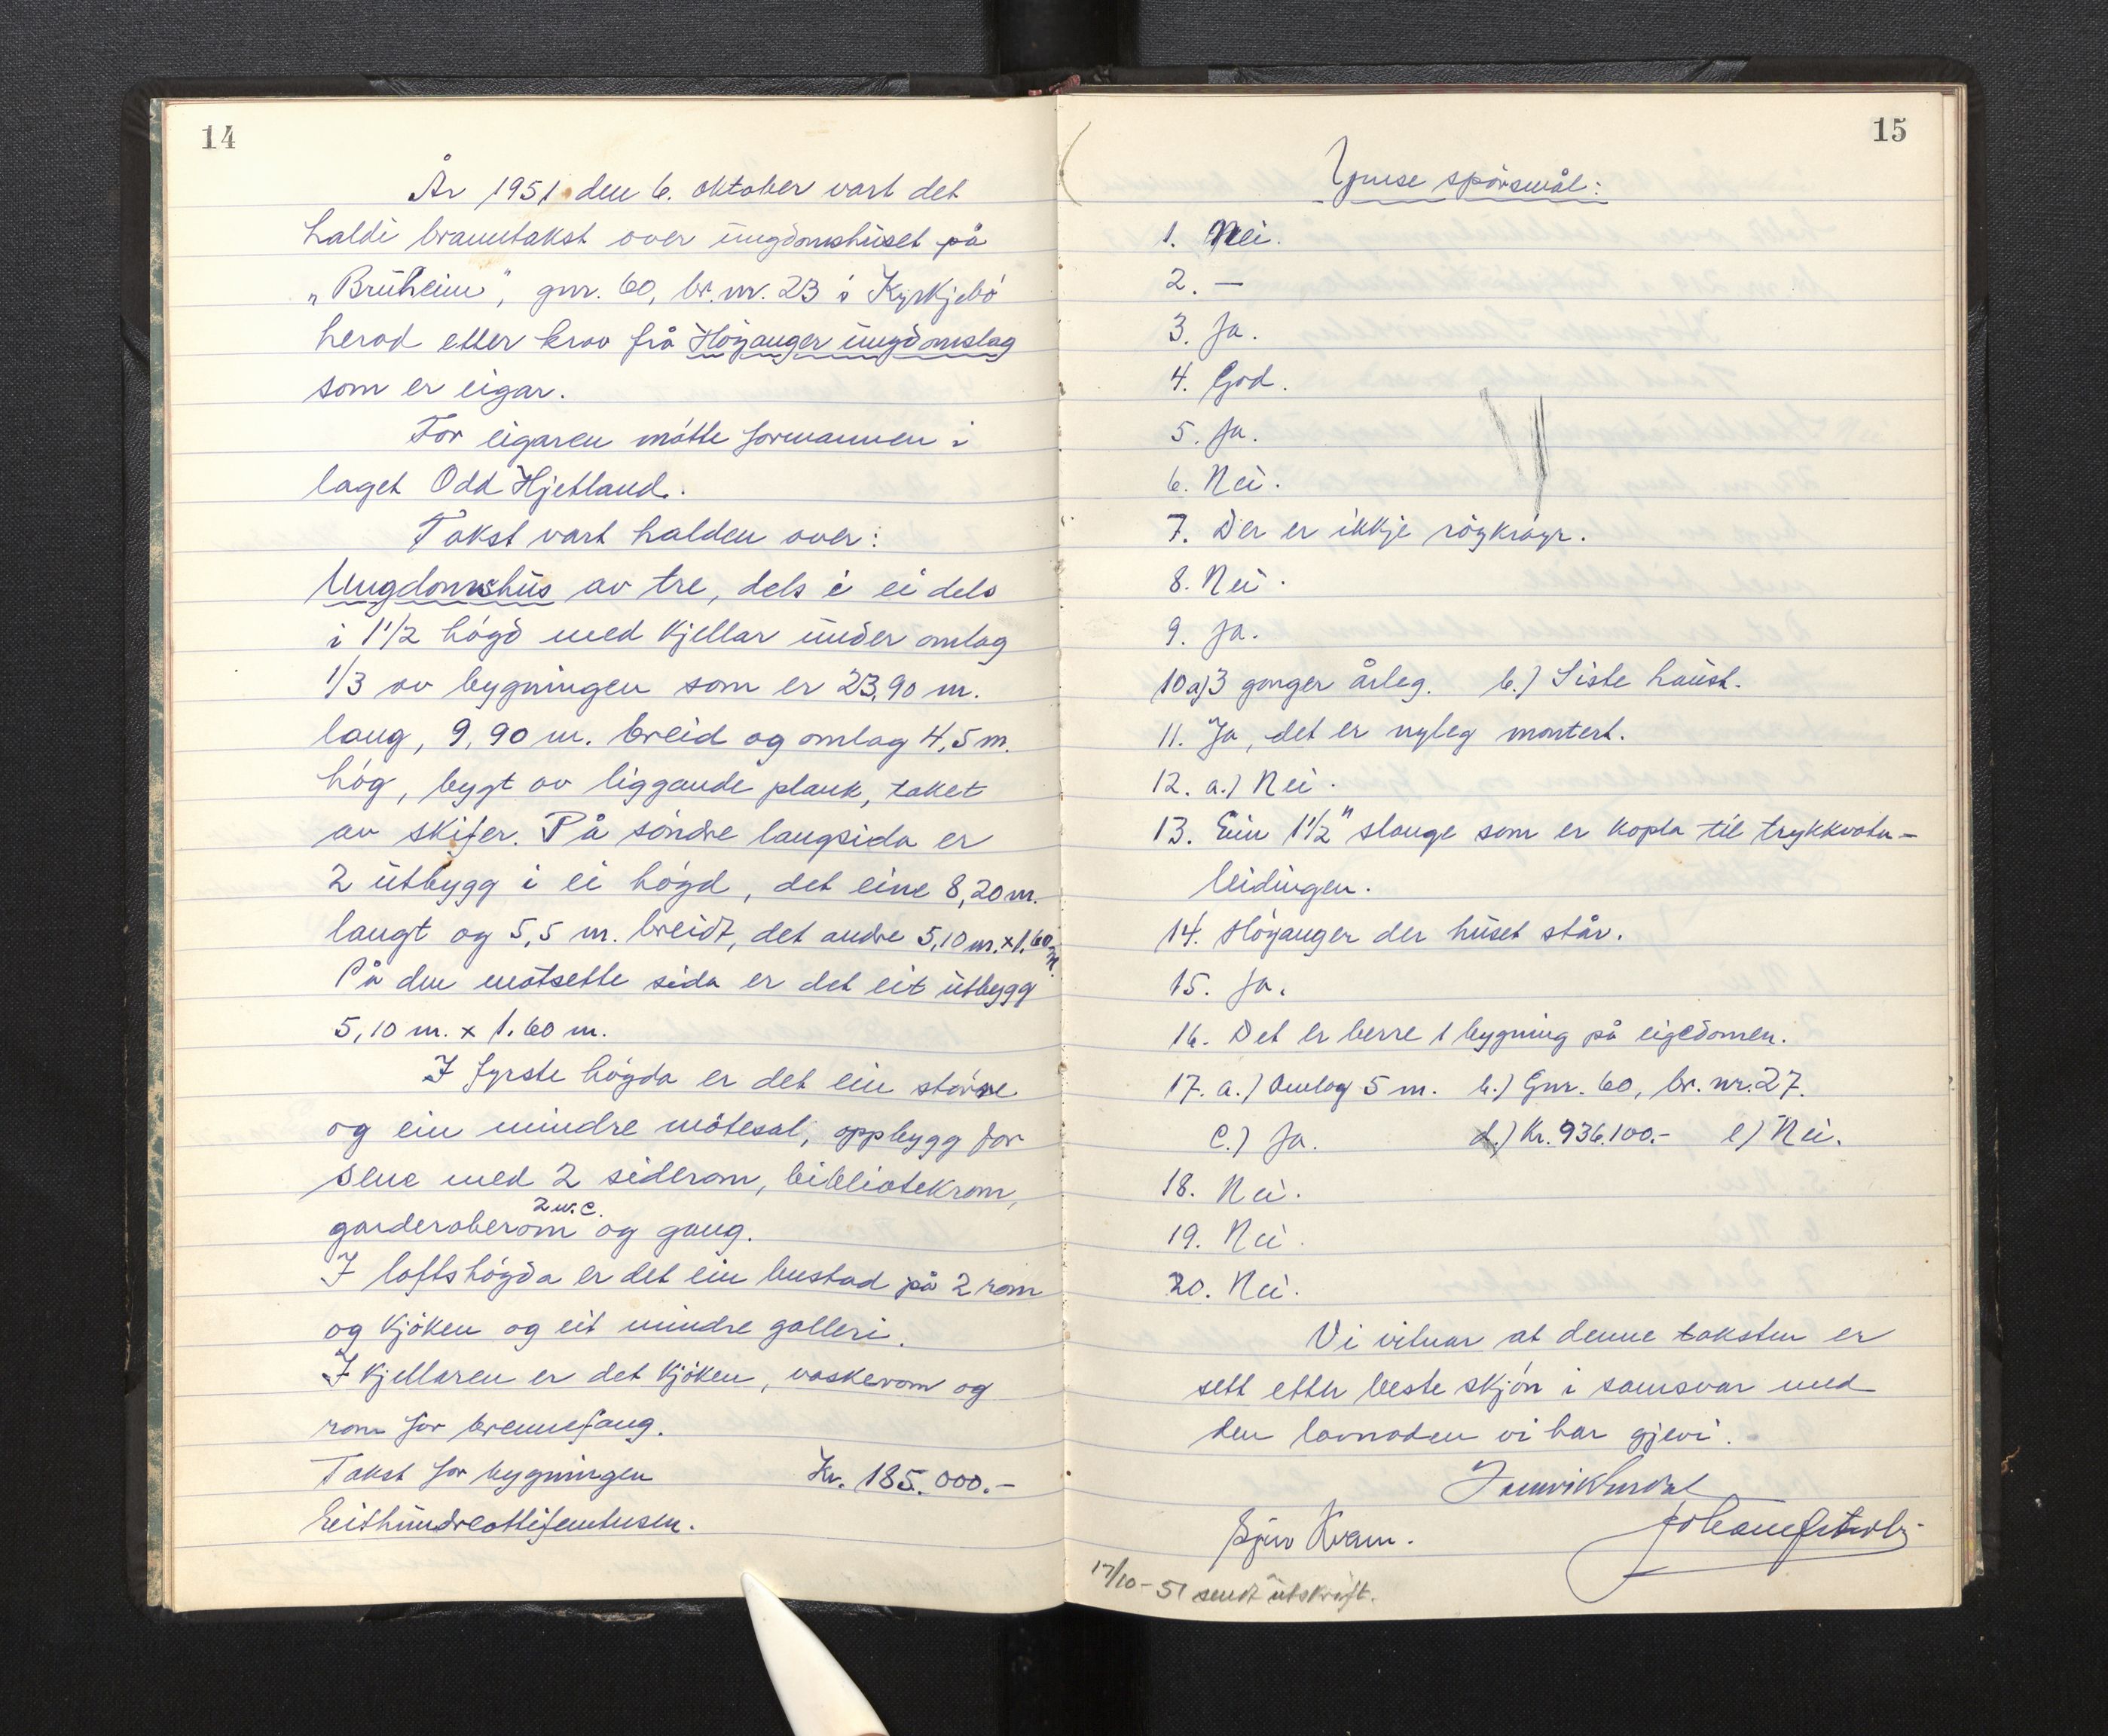 14
År 1951 den 6. oktober vart det
haldi branntakst over ungdomshuset på
„Bruheim", gnr. 60, br. nr. 23 i Kyrkjebö
herad etter krav frå Höyanger ungdomslag
som er eigar.
For eigaren mötte formannen i
laget Odd Hjetland.
Takst vart halden over:
Ungdomshus av tre, dels i ei dels
i 1 1/2 högd med kjellar under omlag
1/3 av bygningen som er 23,90 m.
lang, 9,90 m. breid og omlag 4,5 m.
hög, bygt av liggande plank, taket
av skifer. På söndre langsida er
2 utbygg i ei högd, det eine 8,20 m.
langt og 5,5 m. breidt, det andre 5,10 m. x 1.60 m.
På den motsette sida er det eit utbygg
5,10 m. x 1.60 m.
I fyrste högda er det ein större
og ein mindre mötesal, oppbygg for
sene med 2 siderom, bibliotekrom,
garderoberom 2 w.c. og gang.
I loftshögda er det ein bustad på 2 rom
og kjöken og eit mindre galleri.
I kjellaren er det kjöken, vaskerom og
rom for brennefang.
Takst for bygningen Kr. 185.000.-
Eithundreottifemtusen.
15
Ymse spörsmål:
1. Nei.
2. —
3. Ja.
4. God.
5. Ja.
6. Nei.
7. Der er ikkje röykröyr.
8. Nei.
9. Ja.
10 a) 3 gonger årleg. b.) Siste haust.
11. Ja, det er nyleg montert.
12. a.) Nei.
13. Ein 1 1/2" slange som er kopla til trykkvatn-
leidingen.
14. Höyanger der huset står.
15. Ja.
16. Det er berre 1 bygning på eigedomen.
17. a.) Omlag 5 m. b.) Gnr. 60, br. nr. 27.
c.) Ja. d.) Kr. 936.100.- e) Nei.
18. Nei.
19. Nei.
20. Nei.
Vi vitnar at denne taksten er
sett etter beste skjön i samsvar med
den lovnaden vi har gjevi.
Kvam.
17/10-51 sendt utskrift.